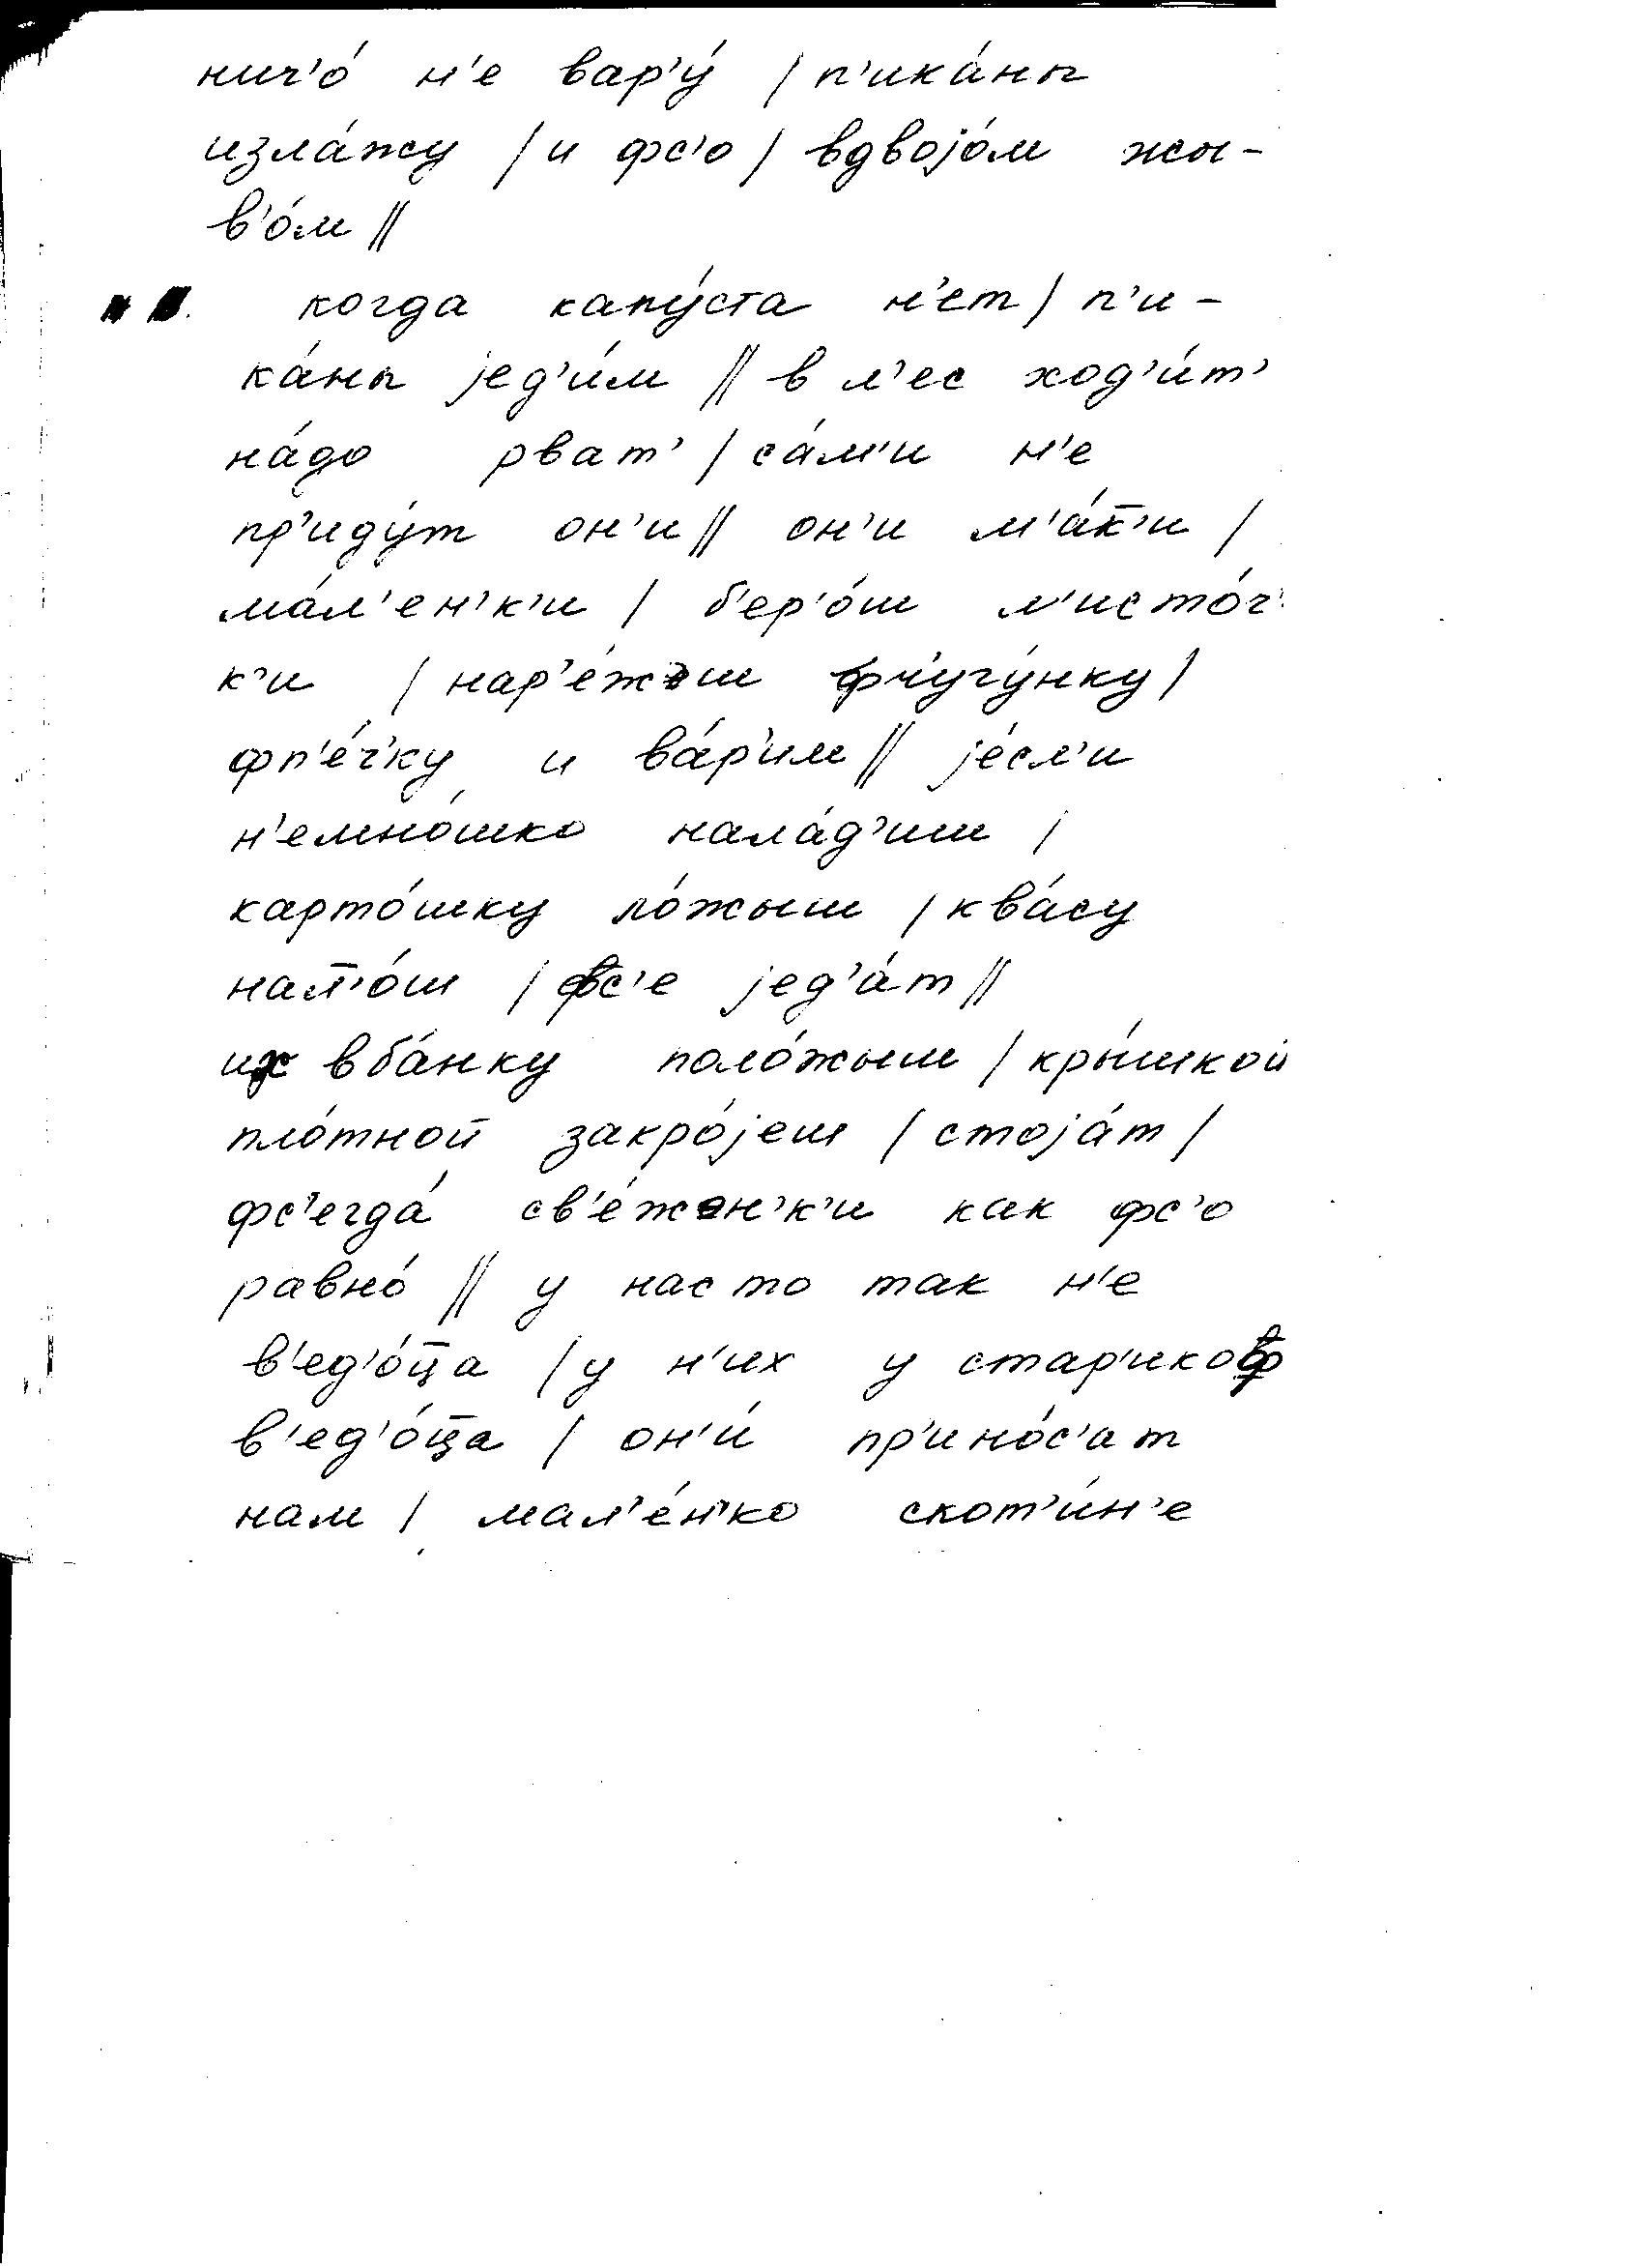 нич'о́ н'е вар'у́ / п'ика́ны
изла́жу / и фс'о / вдвоjо́м жы-
в'о́м //
когда капу́ста н'ет / п'и-
ка́ны jед'и́м // в л'ес ход'и́т'
на́до рват' / са́м'и н'е
пр'иду́т он'и // он'и м'а́к̄'и /
ма́л'ен'к'и / б'ер'о́ш л'исто́ч'
к'и / нар'е́жэш фч'угу́нку /
фп'е́ч'ку и ва́р'им // jе́сл'и
н'емно́шко нала́д'иш /
карто́шку ло́жыш / ква́су
нал̄'о́ш / фс'е jед'а́т //
их в ба́нку поло́жыш / кры́шкой
пло́тной закро́jеш / стоjа́т /
фс'егда́ св'е́жэн'к'и как фс'о
равно́ // у нас то так н'е
в'ед'о́ц̄а / у н'их у стар'икоф
в'ед'о́ц̄а / он'и́ пр'ино́с'ат
нам / мал'е́н'ко скот'и́н'е